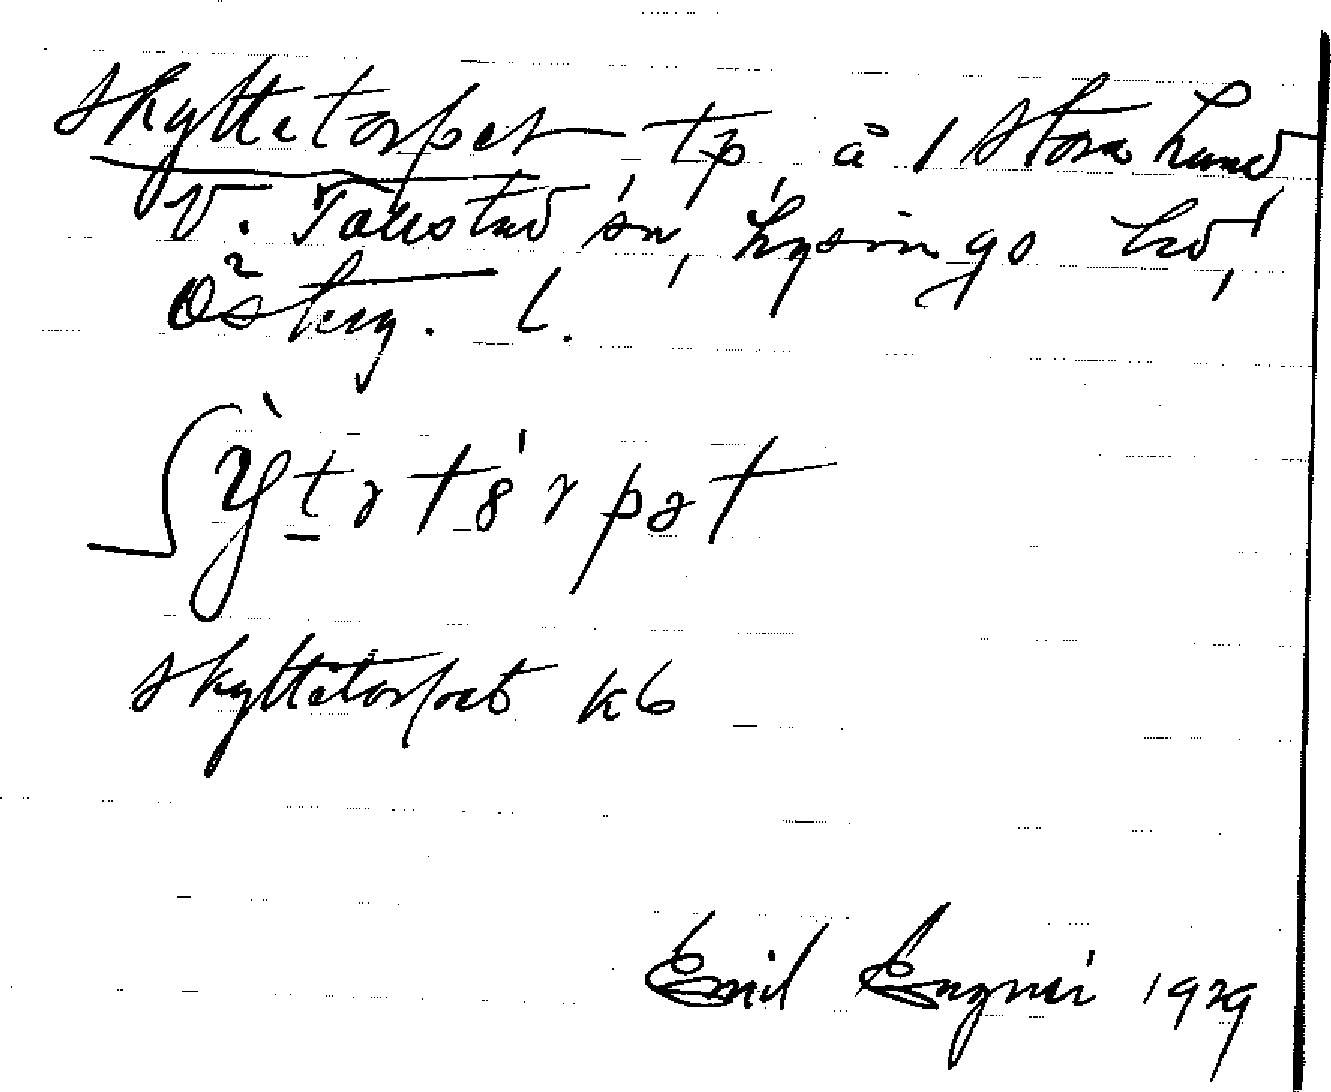 Skyttetorpet tp, å 1 Stora hund
V. Tollstad sn, Lysings hd,
Österg. l.
ʃỳtətórpət
Skyttetorpet kb
Emil 1929